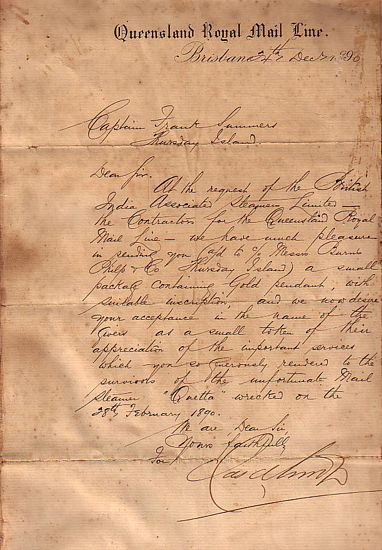 Queensland Royal Mail Line.
Brisbane 4th Decr 1890
Captain Frank Summers
Thursday Island.
Dear Sir,
At the request of the British
India Associated Steamers Limited —
the Contractors for the Queensland Royal
Mail Line — we have much pleasure
in sending you (p/d to c/o Messrs Burns
Philp & Co Thursday Island) a small
package containing Gold pendant, with
suitable inscription, and we now desire
your acceptance in the name of the
as a small token of their
appreciation of the important services
which you so generously rendered to the
survivors of the unfortunate Mail
steamer "Quetta" wrecked on the
28th February 1890.
We are Dear Sir
Yours faithfully
For